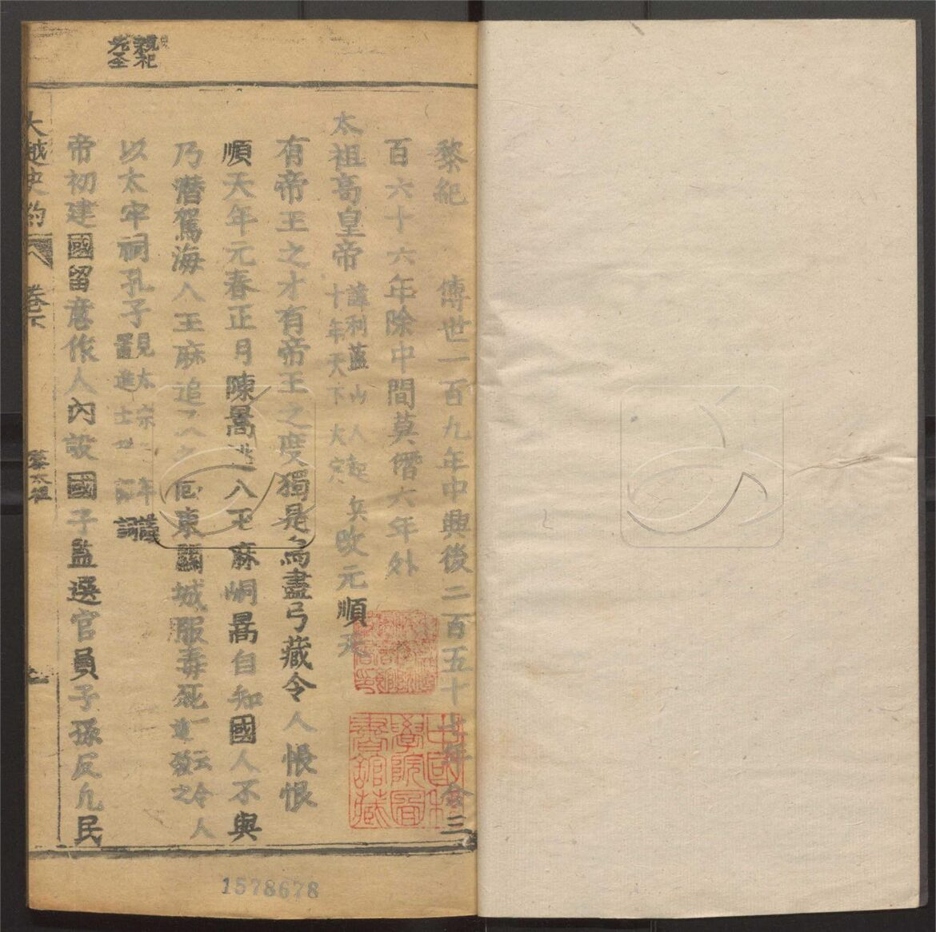 親祀
先圣
黎紀 傳世一百九年中興後二百五十七年合三
百六十六年除中間莫僭六年外
太祖高皇帝 諱利藍山人起兵
十年天下大定 改元順天
有帝王之才有帝王之度獨是鳥盡弓藏令人悵恨
順天年元春正月陳暠逃入玉麻峒暠自知國人不與
乃潛駕海入玉麻追及 回東關城服毒死一云令人
追殺之
以太牢祠孔子
帝初建國留意作人內設國子監選官員子孫及凡民
大越史約 卷下 黎太祖
中國科學院圖書館藏
1578678